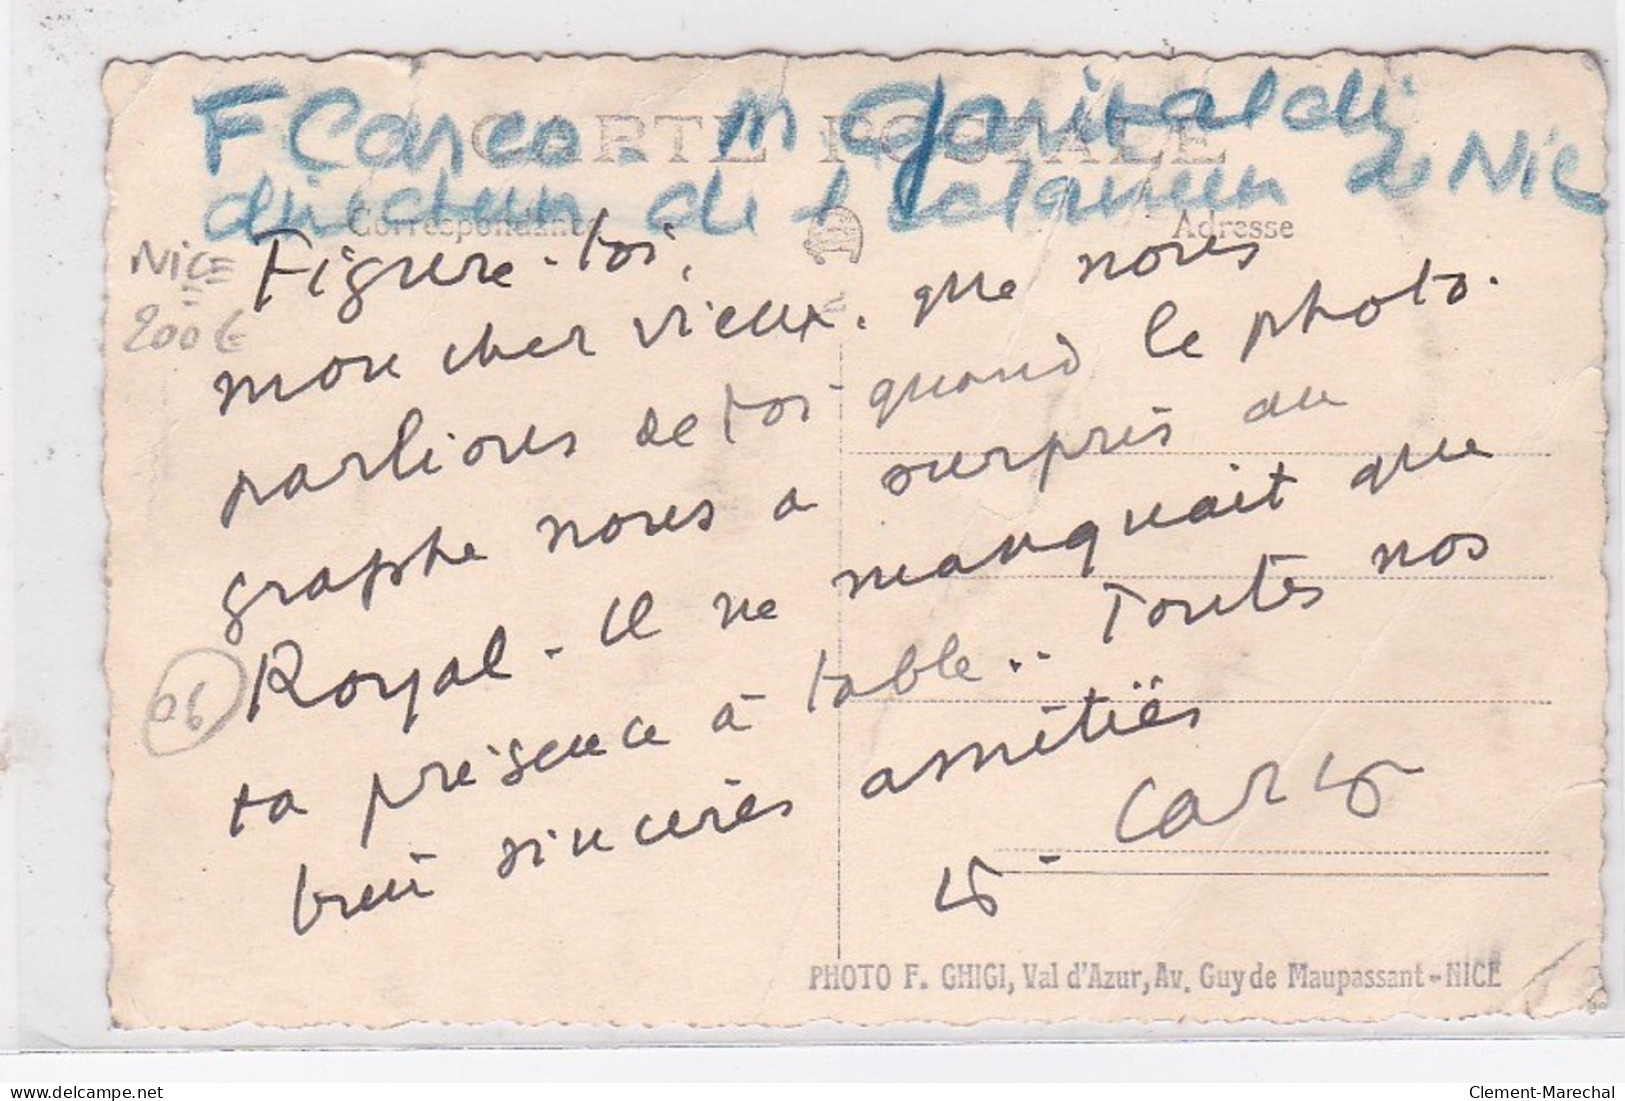 F Carco. M Garibaldi
CARTE POSTALE
directeur de l'Eclaireur de Nice
Correspondance
Adresse
NICE
200€
Figure-toi,
mon cher vieux, que nous
parlions de toi quand le photo-
graphe nous a surpris au
Royal - Il ne manquait que
06
ta présence à table.. Toutes nos
bien sincères amitiés
Carco
PHOTO F. GHIGI, Val d'Azur, Av. Guy de Maupassant - NICE
delcampe.net
Clement-Marechal